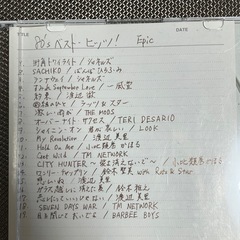 TITLE
80's ベスト・ヒッツ! Epic
1. 街角トワイライト / シャネルズ
2. SACHIKO / ばんばひろふみ
3. ランナウェイ / シャネルズ
4. すみれ September Love / 一風堂
5. 約束 / 渡辺徹
6. め組のひと / ラッツ&スター
7. 激しい雨が / THE MODS
8. オーバーナイト サクセス / TERI DESARIO
9. シャイニン・オン 君が哀しい / LOOK
10. My Revolution / 渡辺美里
11. Hold On Me / 小比類巻かほる
12. Get Wild / TM NETWORK
13. CITY HUNTER ～愛よ消えないで～ / 小比類巻かほる
14. ロンリー・チャップリン / 鈴木聖美 with Rats & Star
15. 悲しいね / 渡辺美里
16. ガラス越しに消えた夏 / 鈴木雅之
17. 恋したっていいじゃない / 渡辺美里
18. SEVEN DAYS WAR / TM NETWORK
19. 目を閉じておいでよ / BARBEE BOYS